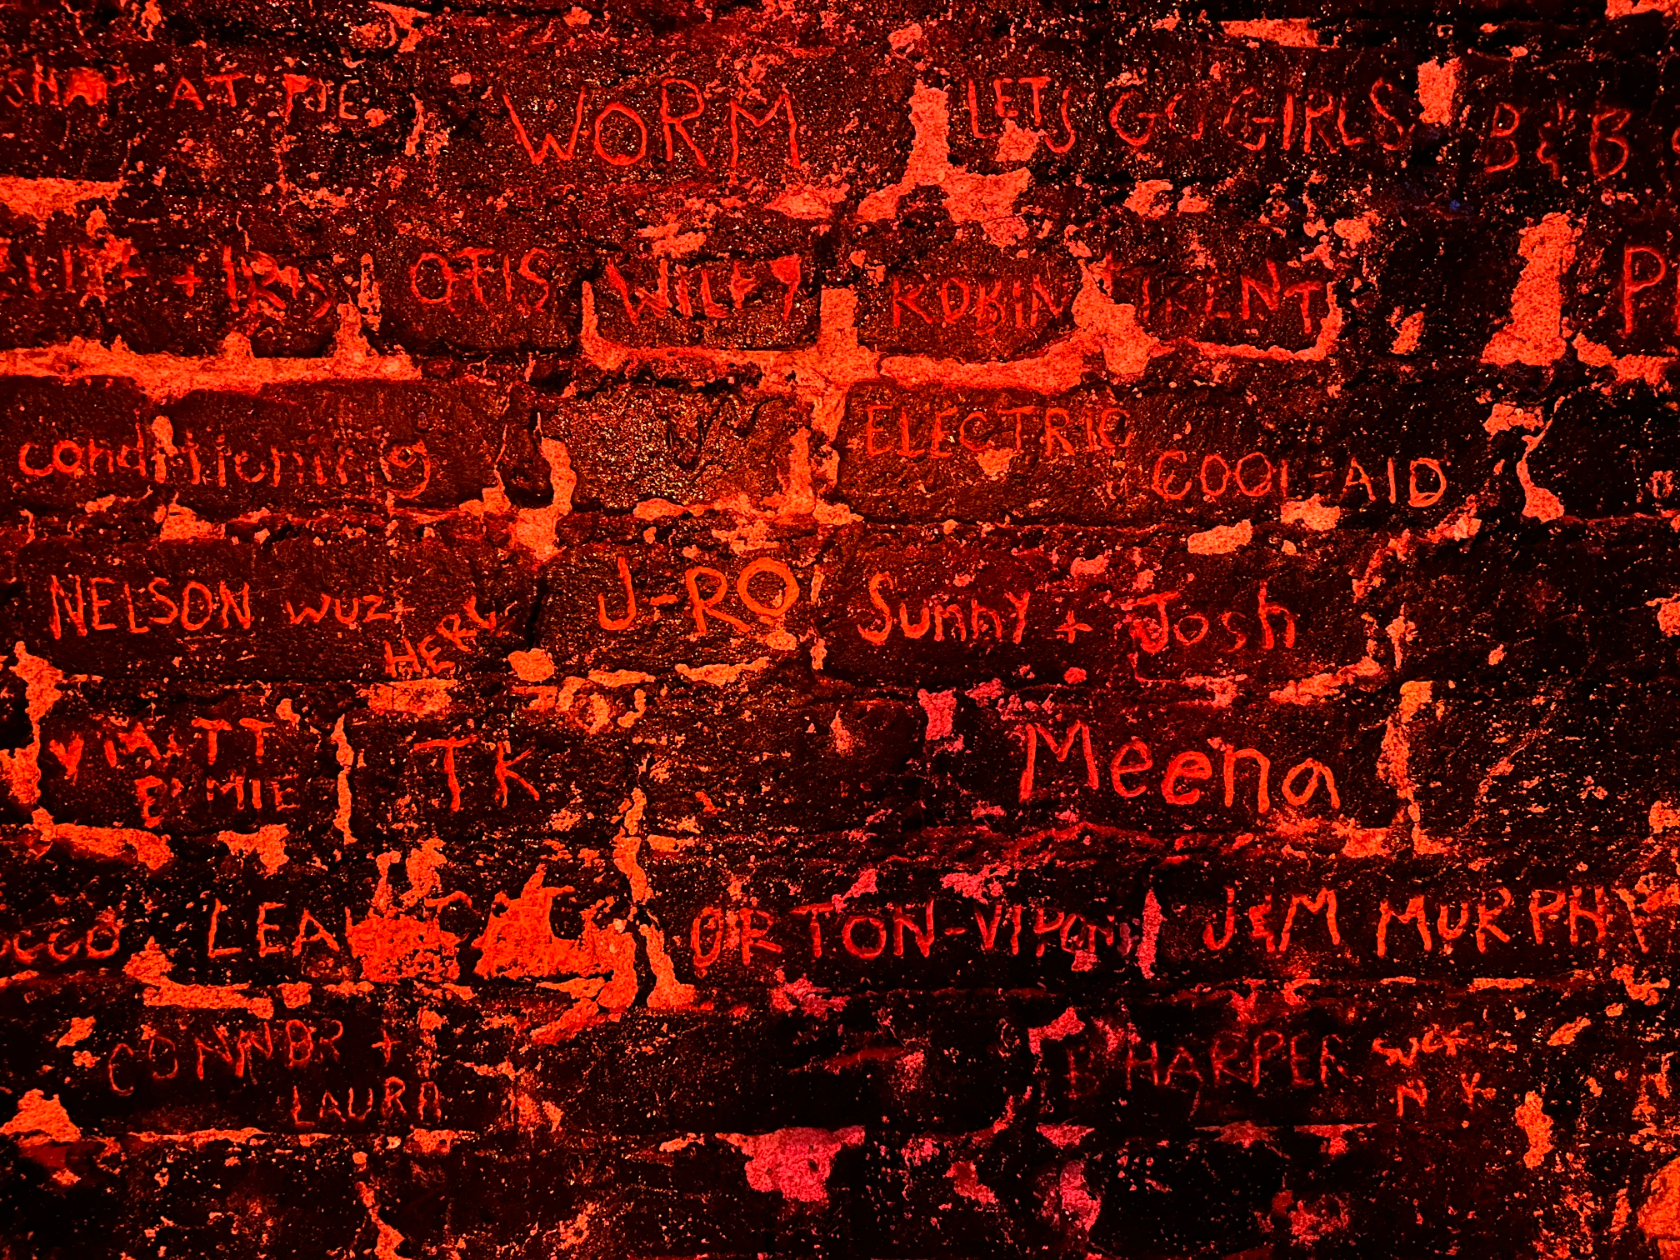 AT
WORM
LETS GO GIRLS
B & B
+ IRIS
OTIS
WILEY
TRENT
P
conditioning
ELECTRIC
COOL-AID
NELSON WUZ
HERE
J-RO
Sunny + Josh
MATT
TK
Meena
LEA
ORTON-
J&M MURPHY
CONNOR +
LAURA
HARPER
N K